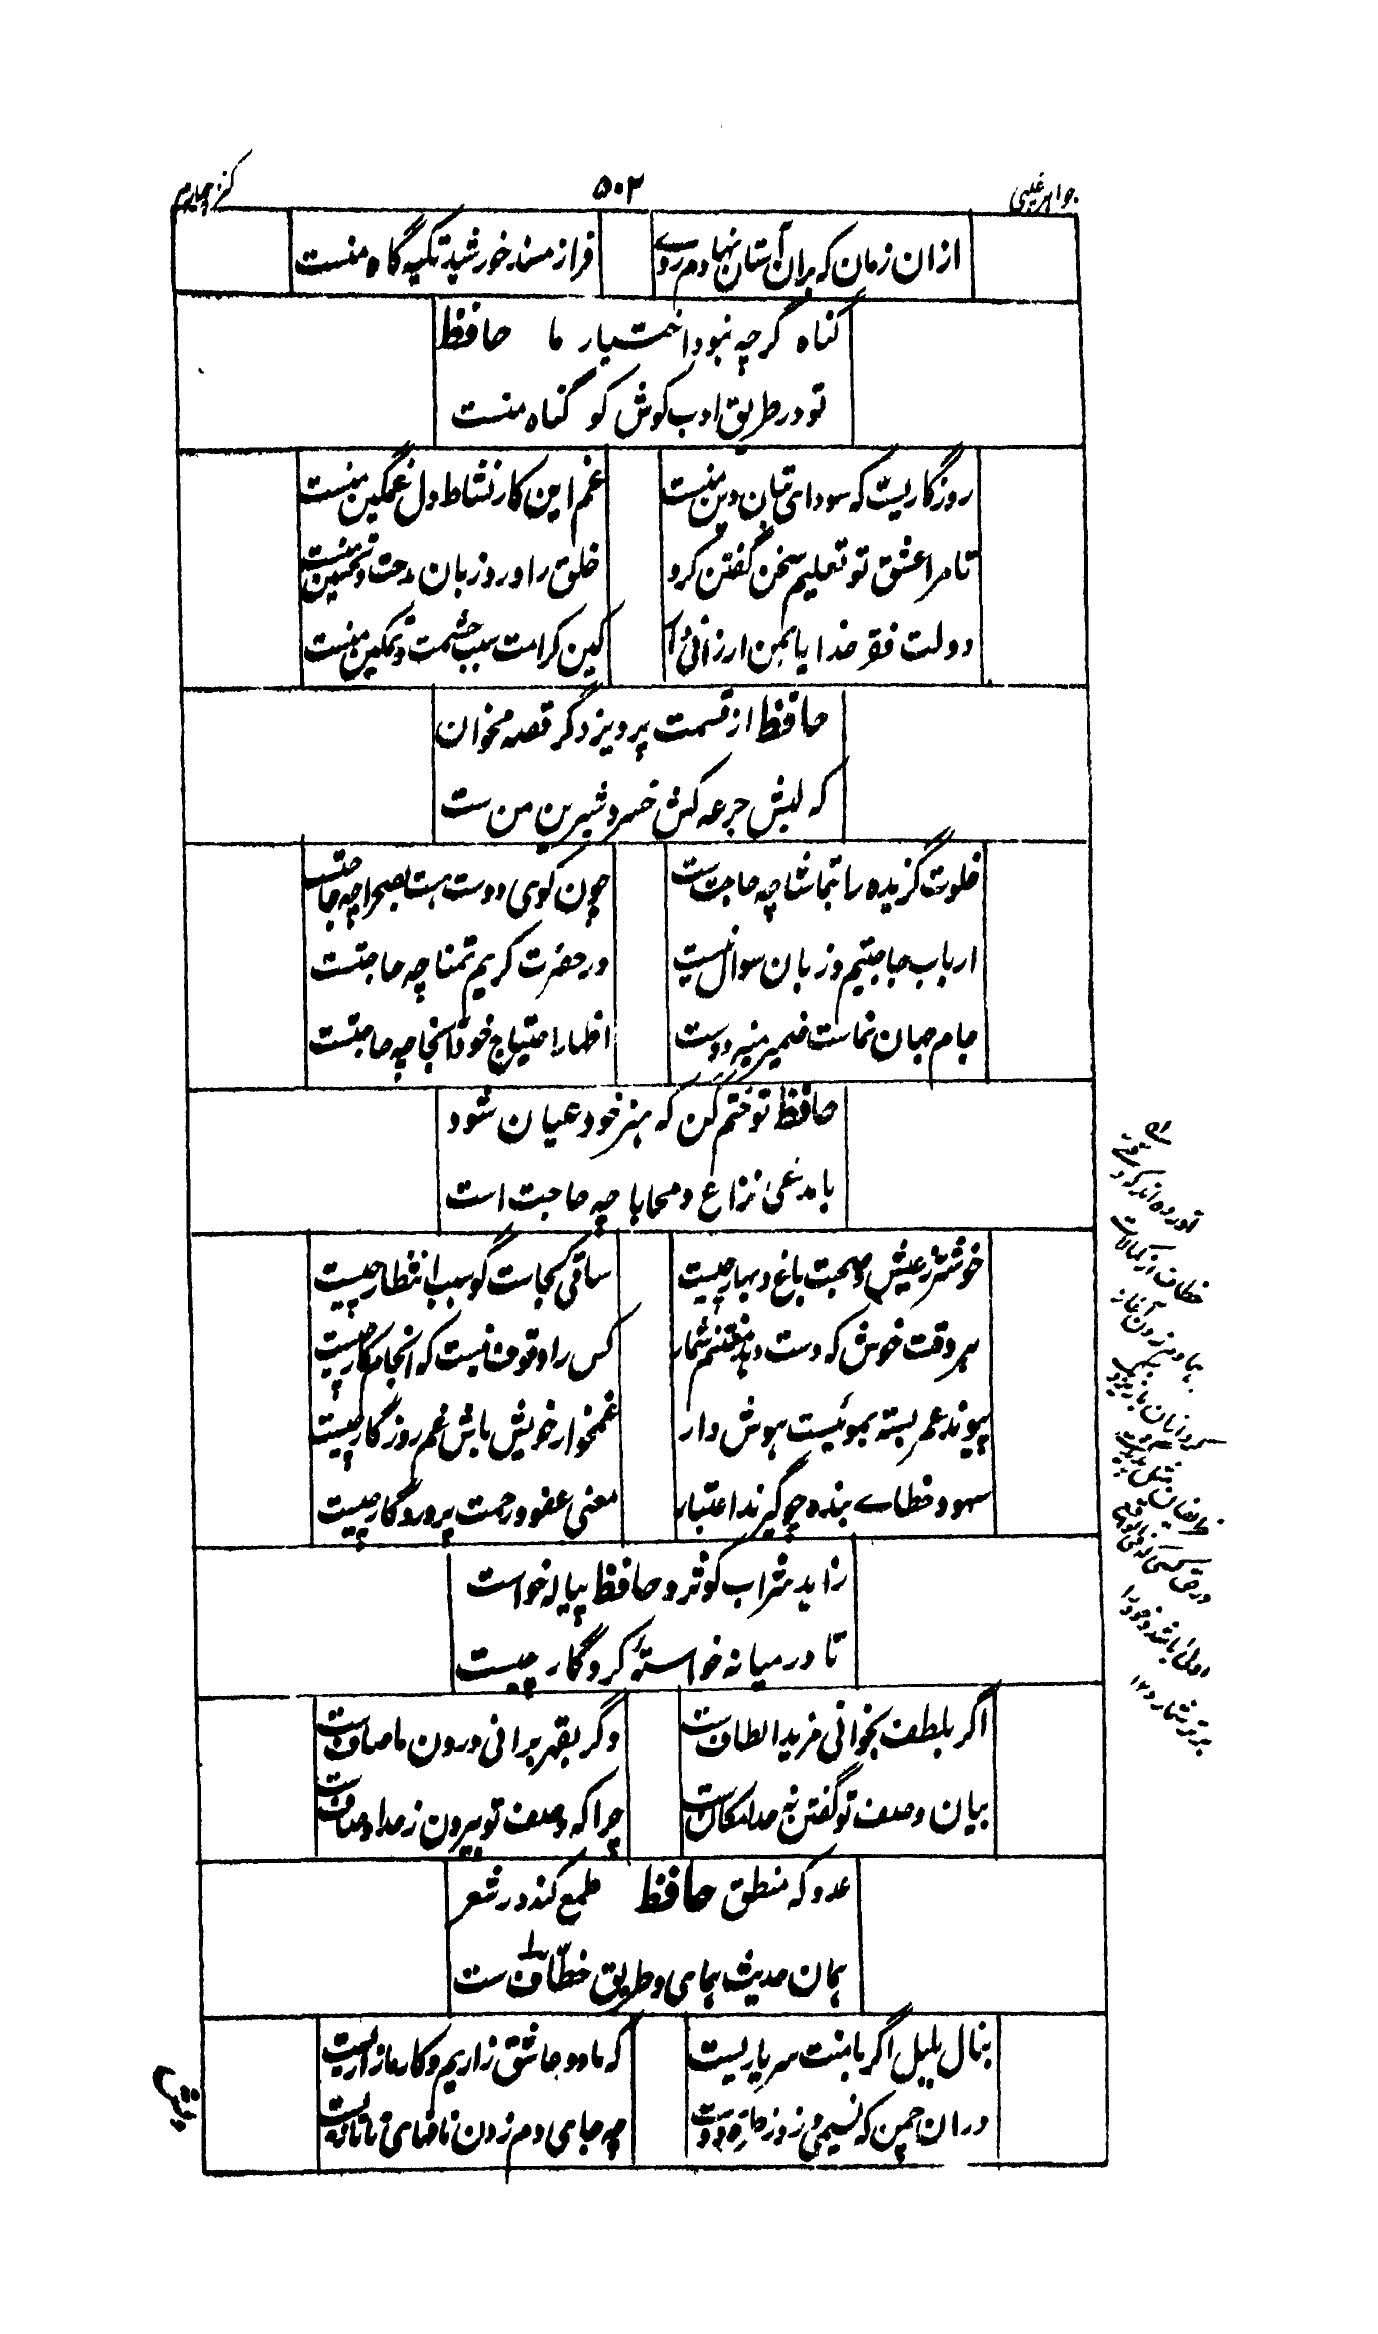 جواهر غیبی
۵۰۲
کنز چهارم
ازان زمان که بران آستان نهادم روے
فراز مسند خورشید تکیه گاه منست
گناه گرچه نبود اختیار ما حافظ
تو در طریق ادب کوش کو گناه منست
روزگاریست که سودای بتان دین منست
غم این کار نشاط دل غمگین منست
تا مرا عشق تو تعلیم سخن گفتن کرد
خلق را ورد زبان مدحت و تحسین منست
دولت فقر خدایا بمن ارزانی
کین کرامت سبب حشمت و تمکین منست
حافظ از قسمت پرویز دگر قصه مخوان
که لبش جرعه کش خسرو شیرین من ست
خلوت گزیده را بتماشا چه حاجت ست
چون کوی دوست هست بصحرا چه حاجتست
ارباب حاجتیم و زبان سوال نیست
در حضرت کریم تمنا چه حاجتست
جام جهان نماست ضمیر منیر دوست
اظهار احتیاج خود آنجا چه حاجتست
حافظ تو ختم کن که هنر خود عیان شود
با مدعی نزاع و محابا چه حاجت است
خوشتر ز عیش و صحبت باغ و بهار چیست
ساقی کجاست گو سبب انتظار چیست
هر وقت خوش که دست دهد مغتنم شمار
کس را وقوف نیست که انجام کار چیست
پیوند عمر بسته بموئیست هوش دار
غمخوار خویش باش غم روزگار چیست
سهو و خطاے بنده چو گیرند اعتبار
معنی عفو و رحمت پروردگار چیست
زاهد شراب کوثر و حافظ پیاله خواست
تا در میانه خواستهٔ کردگار چیست
اگر بلطف بخوانی مزید الطاف ست
وگر بقهر برانی درون ما صاف ست
بیان وصف تو گفتن نه حد امکان ست
چرا که وصف تو بیرون ز حد اوصاف ست
عدو که منطق حافظ طمع کند در شعر
همان حدیث همای و طریق خطّاف ست
بنال بلبل اگر با منت سر یاریست
که ما دو عاشق زاریم و کار ما زاریست
دران چمن که نسیمی وزد ز طره دوست
چه جای دم زدن نافهای تاتاریست
آورده اند که
خطاف از کمالات